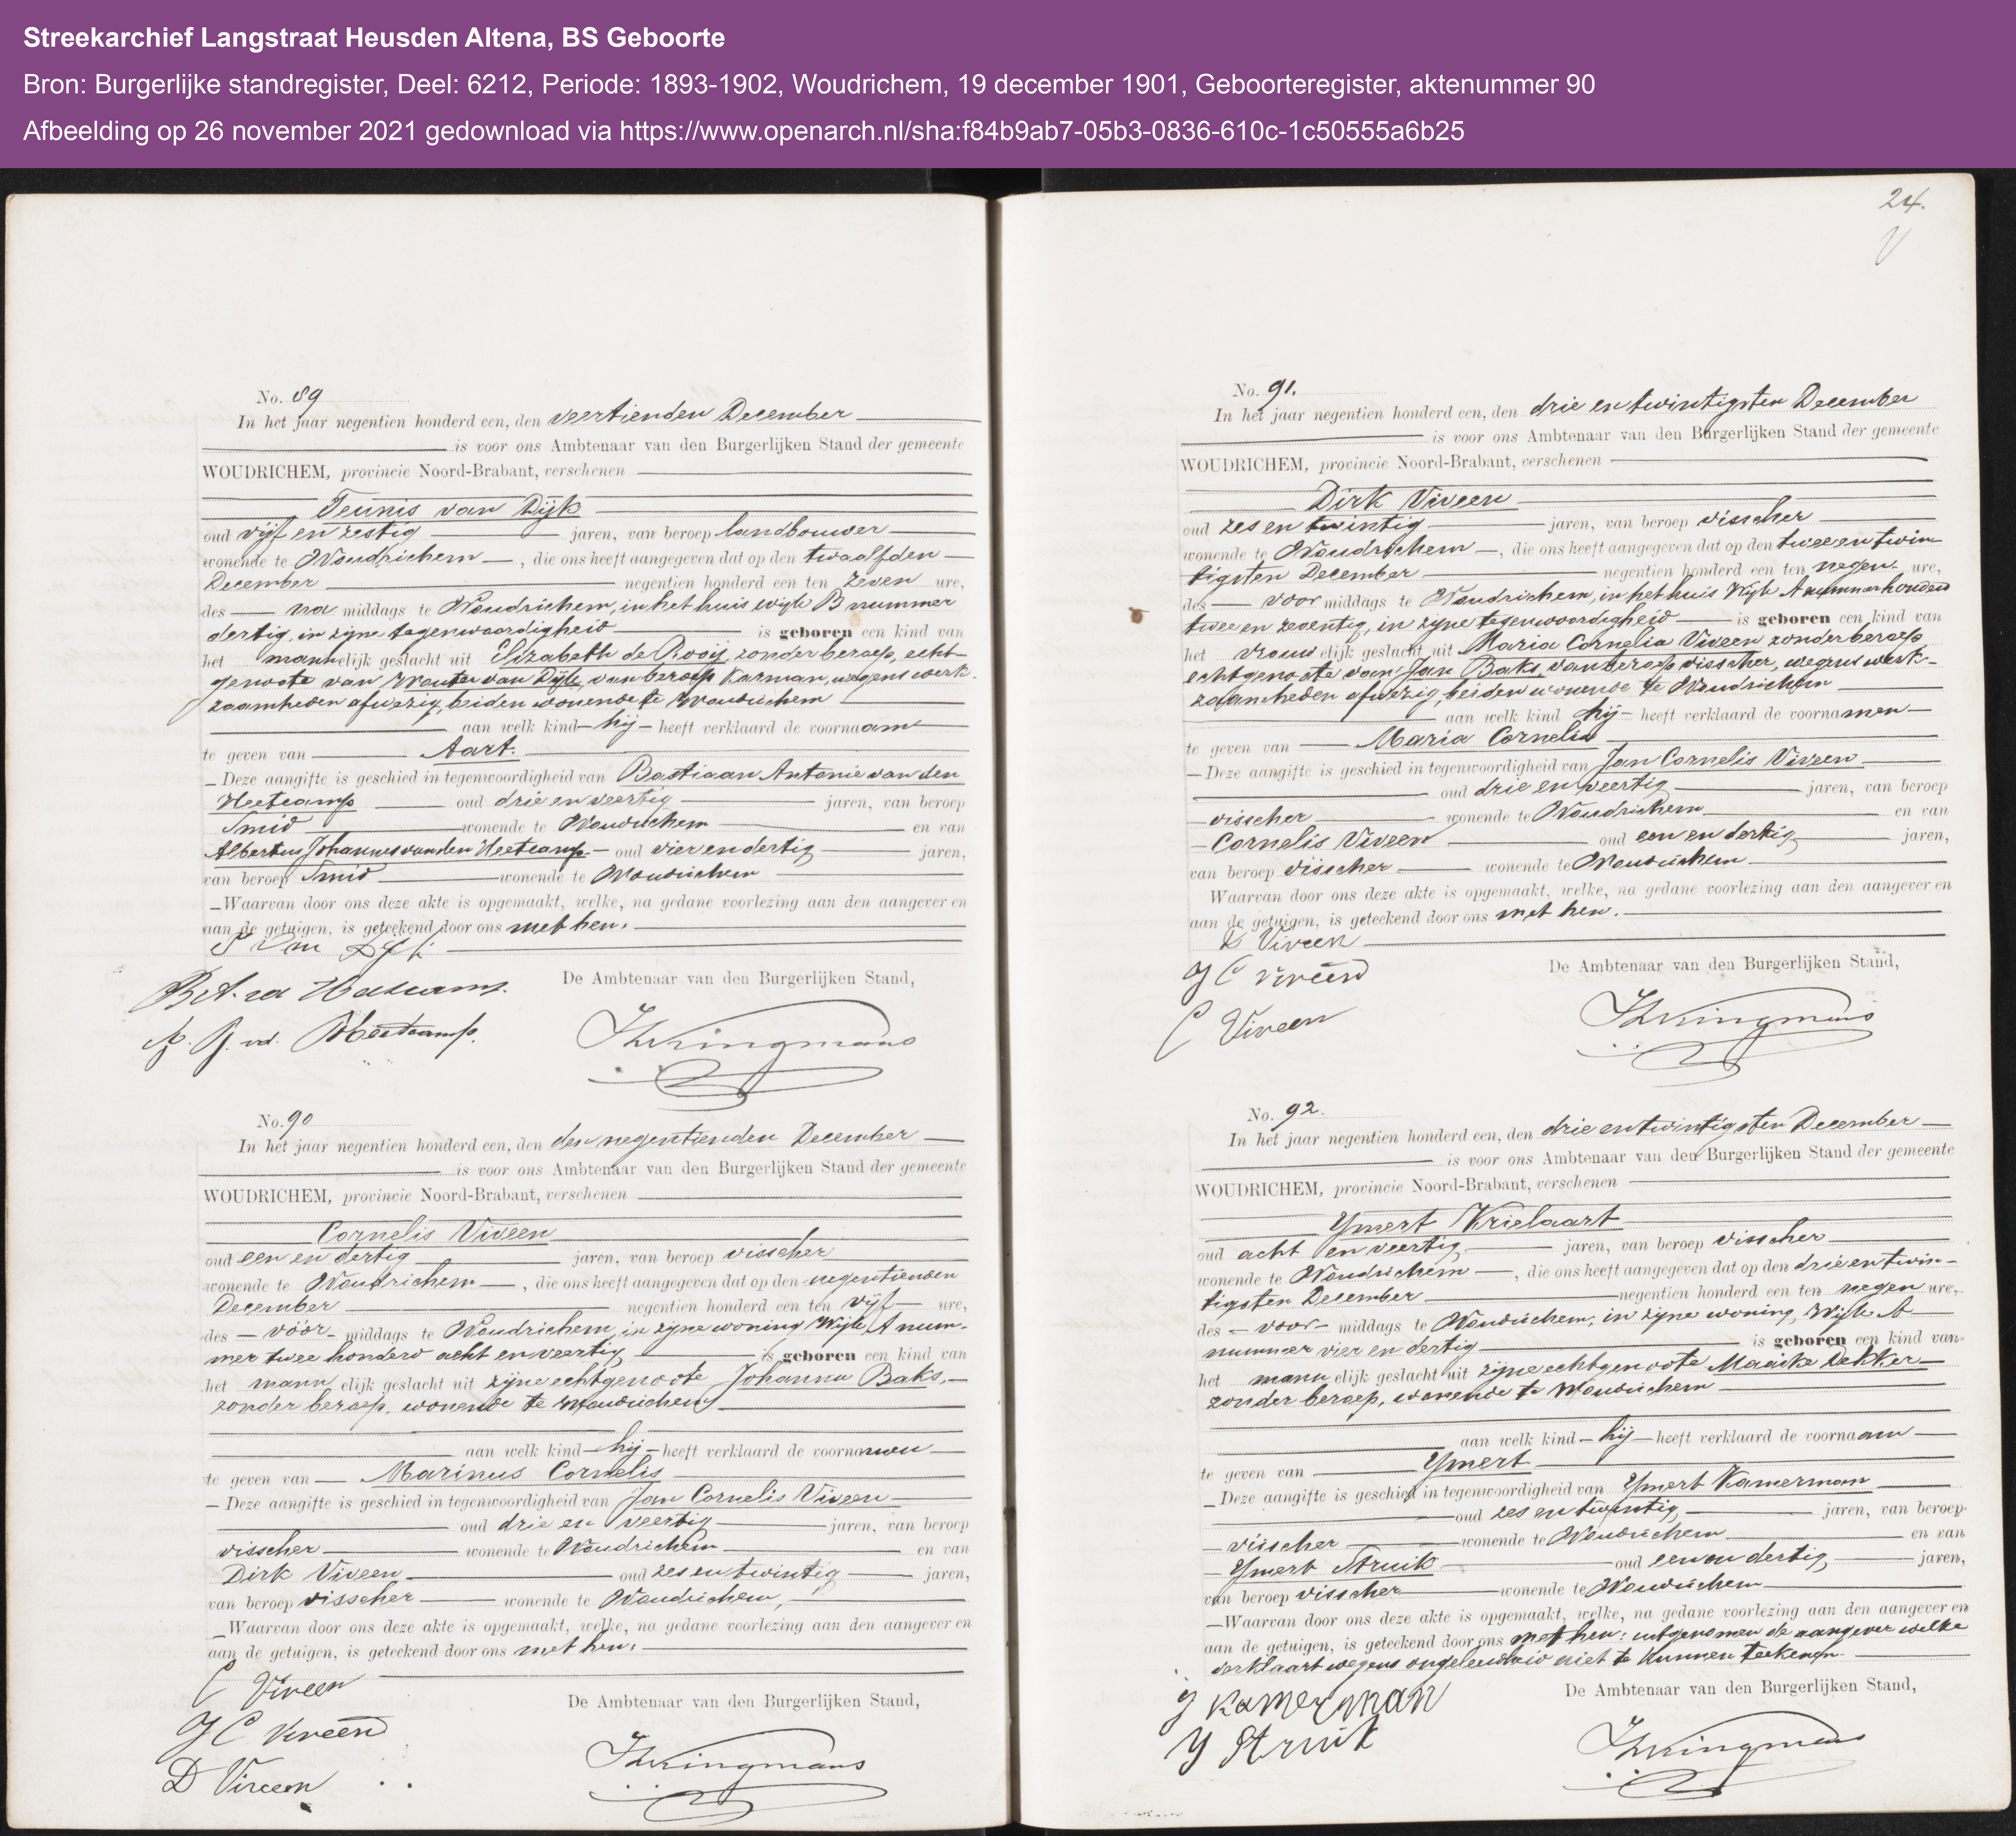 Streekarchief Langstraat Heusden Altena, BS Geboorte
Bron: Burgerlijke standregister, Deel: 6212, Periode: 1893-1902, Woudrichem, 19 december 1901, Geboorteregister, aktenummer 90
Afbeelding op 26 november 2021 gedownload via https://www.openarch.nl/sha:f84b9ab7-05b3-0836-610c-1c50555a6b25
No. 89
In het jaar negentien honderd een, den veertienden December
is voor ons Ambtenaar van den Burgerlijken Stand der gemeente
WOUDRICHEM, provincie Noord-Brabant, verschenen
Teunis van Dijk
oud vijf en zestig jaren, van beroep landbouwer
wonende te Woudrichem, die ons heeft aangegeven dat op den twaalfden
December negentien honderd een ten zeven ure,
des na middags te Woudrichem, in het huis wijk B nummer
dertig, in zijne tegenwoordigheid is geboren een kind van
het mannelijk geslacht uit Elizabeth de Rooij, zonder beroep, echt-
genoote van Wouter van Dijk, van beroep karman, wegens werk-
zaamheden afwezig, beiden wonende te Woudrichem
aan welk kind hij heeft verklaard de voornaam
te geven van Aart.
Deze aangifte is geschied in tegenwoordigheid van Bastiaan Antonie van den
Heetcamp oud drie en veertig jaren, van beroep
Smid wonende te Woudrichem en van
Albertus Johannes van den Heetcamp oud vier en dertig jaren,
van beroep Smid wonende te Woudrichem
Waarvan door ons deze akte is opgemaakt, welke, na gedane voorlezing aan den aangever en
aan de getuigen, is geteekend door ons met hen.
van Dijk
De Ambtenaar van den Burgerlijken Stand,
B A vd Heetcamp.
A. J. vd. Heetcamp.
No. 90
In het jaar negentien honderd een, den den negentienden December
is voor ons Ambtenaar van den Burgerlijken Stand der gemeente
WOUDRICHEM, provincie Noord-Brabant, verschenen
Cornelis Viveen
oud een en dertig jaren, van beroep visscher
wonende te Woudrichem, die ons heeft aangegeven dat op den negentienden
December negentien honderd een ten vijf ure,
des vóór middags te Woudrichem, in zijne woning Wijk A num-
mer twee honderd acht en veertig is geboren een kind van
het mannelijk geslacht uit zijne echtgenoote Johanna Baks,
zonder beroep, wonende te Woudrichem
aan welk kind hij heeft verklaard de voornamen
te geven van Marinus Cornelis
Deze aangifte is geschied in tegenwoordigheid van Jan Cornelis Viveen
oud drie en veertig jaren, van beroep
visscher wonende te Woudrichem en van
Dirk Viveen oud zes en twintig jaren,
van beroep visscher wonende te Woudrichem,
Waarvan door ons deze akte is opgemaakt, welke, na gedane voorlezing aan den aangever en
aan de getuigen, is geteekend door ons met hen.
C Viveen
De Ambtenaar van den Burgerlijken Stand,
J C Viveen
D Viveen
24.
No. 91.
In het jaar negentien honderd een, den drie en twintigsten December
is voor ons Ambtenaar van den Burgerlijken Stand der gemeente
WOUDRICHEM, provincie Noord-Brabant, verschenen
Dirk Viveen
oud zes en twintig jaren, van beroep visscher
wonende te Woudrichem, die ons heeft aangegeven dat op den twee en twin-
tigsten December negentien honderd een ten negen ure,
des voor middags te Woudrichem, in het huis Wijk A nummer honderd
twee en zeventig, in zijne tegenwoordigheid is geboren een kind van
het vrouwelijk geslacht uit Maria Cornelia Viveen zonder beroep
echtgenoote van Jan Baks, van beroep visscher, wegens werk-
zaamheden afwezig, beiden wonende te Woudrichem
aan welk kind hij heeft verklaard de voornamen
te geven van Maria Cornelia
Deze aangifte is geschied in tegenwoordigheid van Jan Cornelis Viveen
oud drie en veertig jaren, van beroep
visscher wonende te Woudrichem en van
Cornelis Viveen oud een en dertig jaren,
van beroep visscher wonende te Woudrichem
Waarvan door ons deze akte is opgemaakt, welke, na gedane voorlezing aan den aangever en
aan de getuigen, is geteekend door ons met hen.
D Viveen
De Ambtenaar van den Burgerlijken Stand,
J C Viveen
C Viveen
No. 92.
In het jaar negentien honderd een, den drie en twintigsten December
is voor ons Ambtenaar van den Burgerlijken Stand der gemeente
WOUDRICHEM, provincie Noord-Brabant, verschenen
Ymert Krielaart
oud acht en veertig jaren, van beroep visscher
wonende te Woudrichem, die ons heeft aangegeven dat op den drie en twin-
tigsten December negentien honderd een ten negen ure,
des voor middags te Woudrichem, in zijne woning, Wijk A
nummer vier en dertig is geboren een kind van
het mannelijk geslacht uit zijne echtgenoote Maaike Dekker
zonder beroep, wonende te Woudrichem
aan welk kind hij heeft verklaard de voornaam
te geven van Ymert
Deze aangifte is geschied in tegenwoordigheid van Ymert Kamerman
oud zes en twintig jaren, van beroep
visscher wonende te Woudrichem en van
Ymert Struik oud een en dertig jaren,
van beroep visscher wonende te Woudrichem
Waarvan door ons deze akte is opgemaakt, welke, na gedane voorlezing aan den aangever en
aan de getuigen, is geteekend door ons met hen: uitgenomen de aangever welke
verklaart wegens ongeleerdheid niet te kunnen teekenen.
De Ambtenaar van den Burgerlijken Stand,
y Kamerman
y Struik